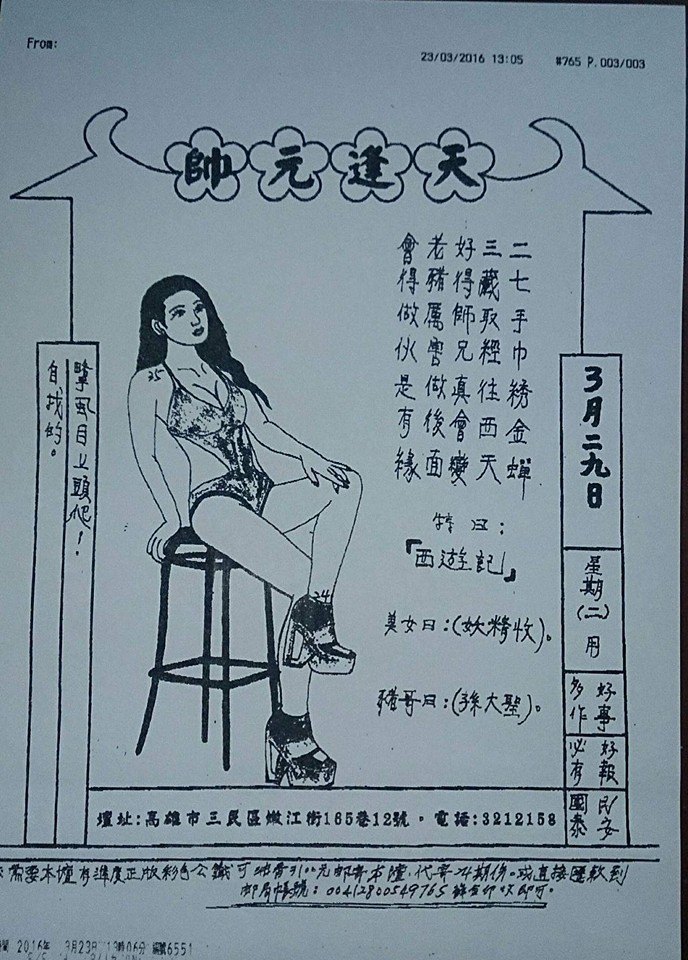 From:
23/03/2016 13:05 #765 P.003/003
天逢元帥
二七手巾綉金蟬
三藏取經往西天
好得師兄真會變
老豬厲害做後面
會得做伙是有緣
特曰:
『西遊記』
美女曰:(妖精收)。
豬哥曰:(孫大聖)。
3月二九日
星期(二)用
好事多作
好報必有
民安國泰
自找的。
25
24
壇址:高雄市三民區嫩江街165巷12號。電話:3212158
需要本壇有進度正版彩色公鐵可地寄3100元郵寄本壇,代寄24期份。或直接匯款到
郵局帳號:00412800549765
2016年 3月23日 13時06分 編號6551